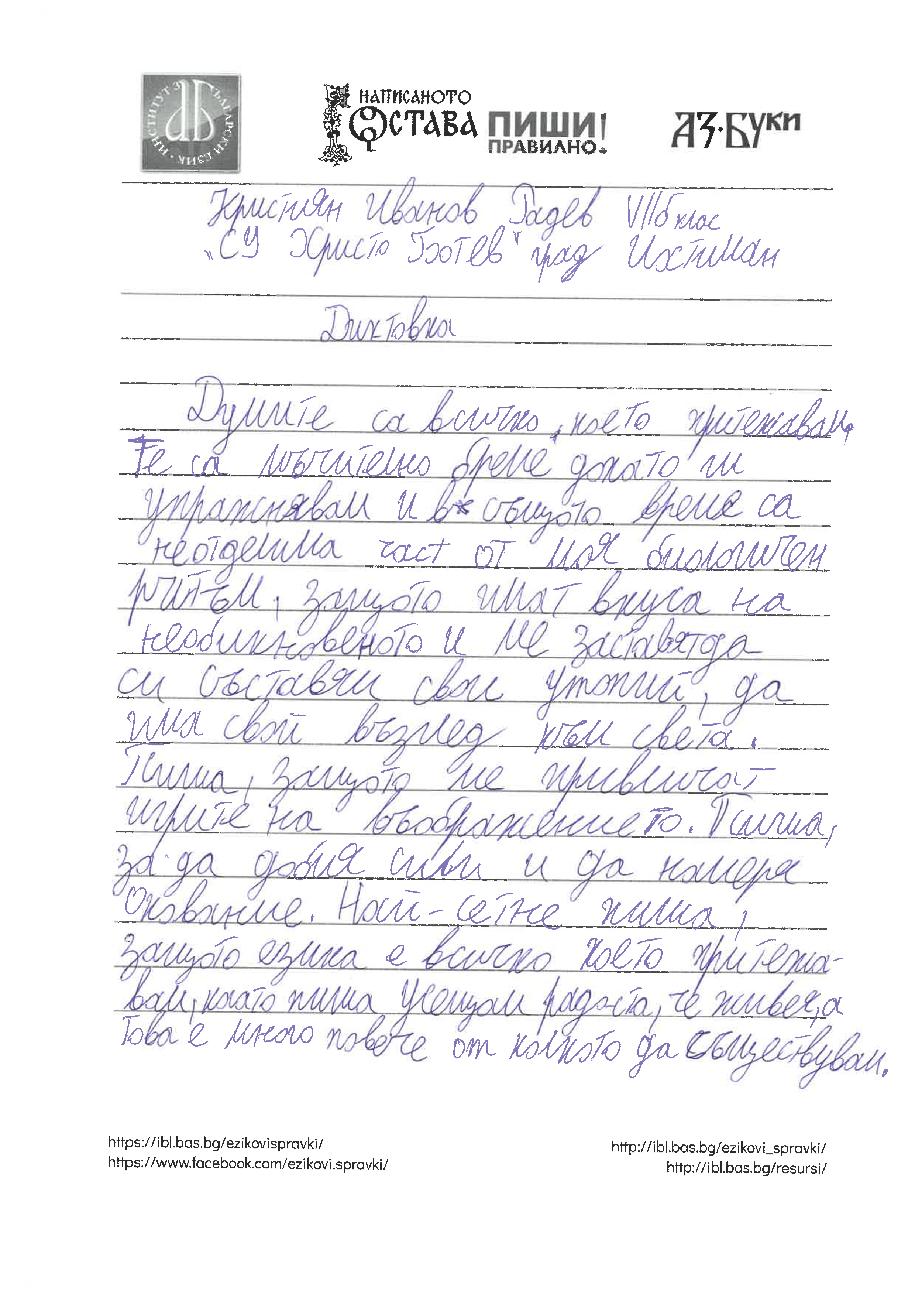 ИНСТИТУТ ЗА БЪЛГАРСКИ ЕЗИК
НАПИСАНОТО
ОСТАВА
ПИШИ
ПРАВИЛНО!
АЗ·БУКИ
Кристиян Иванов Радев VIIб клас
"СУ Христо Ботев" град Ихтиман
Диктовка
Думите са всичко, което притежавам,
Те са мъчително бреме докато ги
упражнявам и в същото време са
неотделима част от моя биологичен
ритъм, защото имат вкуса на
необикновеното и ме заставятда
си съставям свои утопии, да
има свой възглед към света.
Пиша, защото ме привличат
игрите на въображението. Пиша,
за да добия сили и да намеря
опование. Най-сетне пиша,
защото езика е всичко което притежа-
вам, когато пиша усещам радоста, че живея, а
това е много повече от колкото да съществувам.
https://ibl.bas.bg/ezikovispravki/
https://www.facebook.com/ezikovi.spravki/
http://ibl.bas.bg/ezikovi_spravki/
http://ibl.bas.bg/resursi/